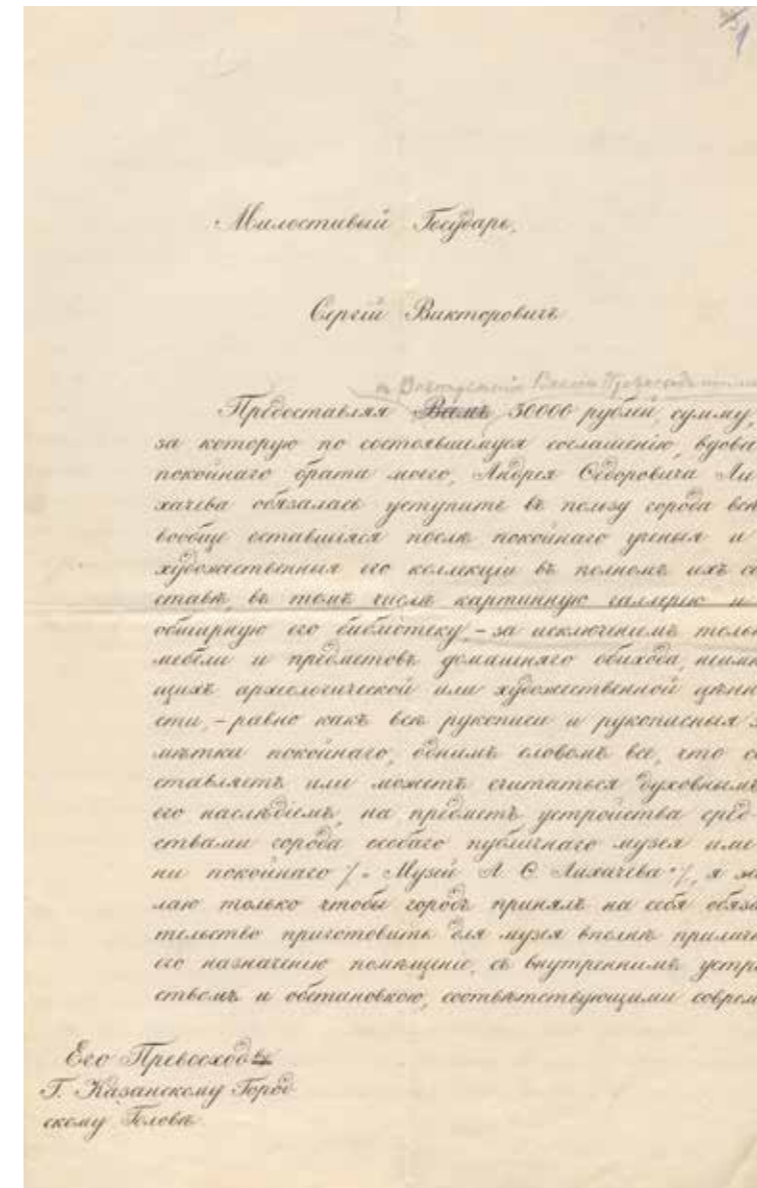 1
Милостивый Государь,
Сергій Викторовичъ
Предоставляя Вамъ 30000 рублей, сумму,
за которую по состоявшемуся соглашенію, вдова
покойнаго брата моего, Андрея Ѳедоровича Ли
хачева обязалась уступить въ пользу города всѣ
вообще оставшіяся послѣ покойнаго ученыя и
художественныя его коллекціи въ полномъ ихъ со
ставѣ, въ томъ числѣ картинную галлерею и
обширную его библіотеку, – за исключеніемъ тольк
мебели и предметовъ домашняго обихода, неимѣ
ющихъ археологической или художественной цѣнн
сти, – равно какъ всѣ рукописи и рукописныя з
мѣтки покойнаго, однимъ словомъ все, что со
ставляетъ или можетъ считаться духовнымъ
его наслѣдіемъ, на предметъ устройства сред-
ствами города особаго публичнаго музея име
ни покойнаго /„Музей А. Ѳ. Лихачева"/, я же
лаю только чтобы городъ принялъ на себя обяза
тельство приготовить для музея вполнѣ приличн
его назначенію помѣщеніе, съ внутреннимъ устро
ствомъ и обстановкою, соотвѣтствующими соврем
Его Превосход
Г. Казанскому Город
скому Головѣ.